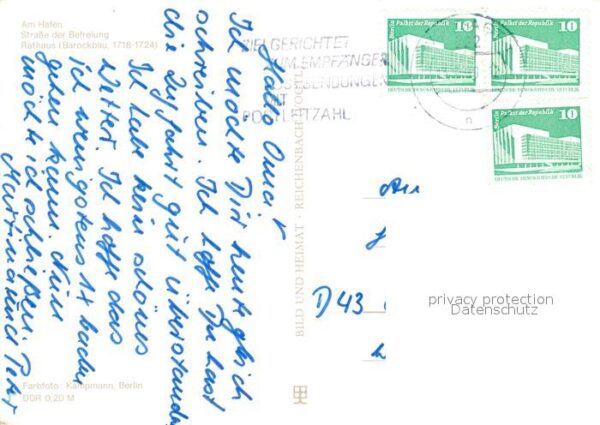 Am Hafen
Straße der Befreiung
Rathaus (Barockbau, 1718-1724)
Hallo Oma!
Ich möchte Dir heute gleich
schreiben. Ich hoffe Du hast
die Zugfahrt gut überstanden
Ich habe kein schönes
Wetter. Ich hoffe das
ich wenigstens 1x baden
gehen kann. Nun
möchte ich schließen.
Martina und Peter
Farbfoto: Kampmann, Berlin
DDR 0,20 M
BILD UND HEIMAT · REICHENBACH (VOGTL)
ZIELGERICHTET
ZUM EMPFÄNGER
POSTSENDUNGEN
MIT
POSTLEITZAHL
Berlin Palast der Republik 10
DEUTSCHE DEMOKRATISCHE REPUBLIK
Berlin Palast der Republik 10
DEUTSCHE DEMOKRATISCHE REPUBLIK
Berlin Palast der Republik 10
DEUTSCHE DEMOKRATISCHE REPUBLIK
An
D 43
privacy protection
Datenschutz